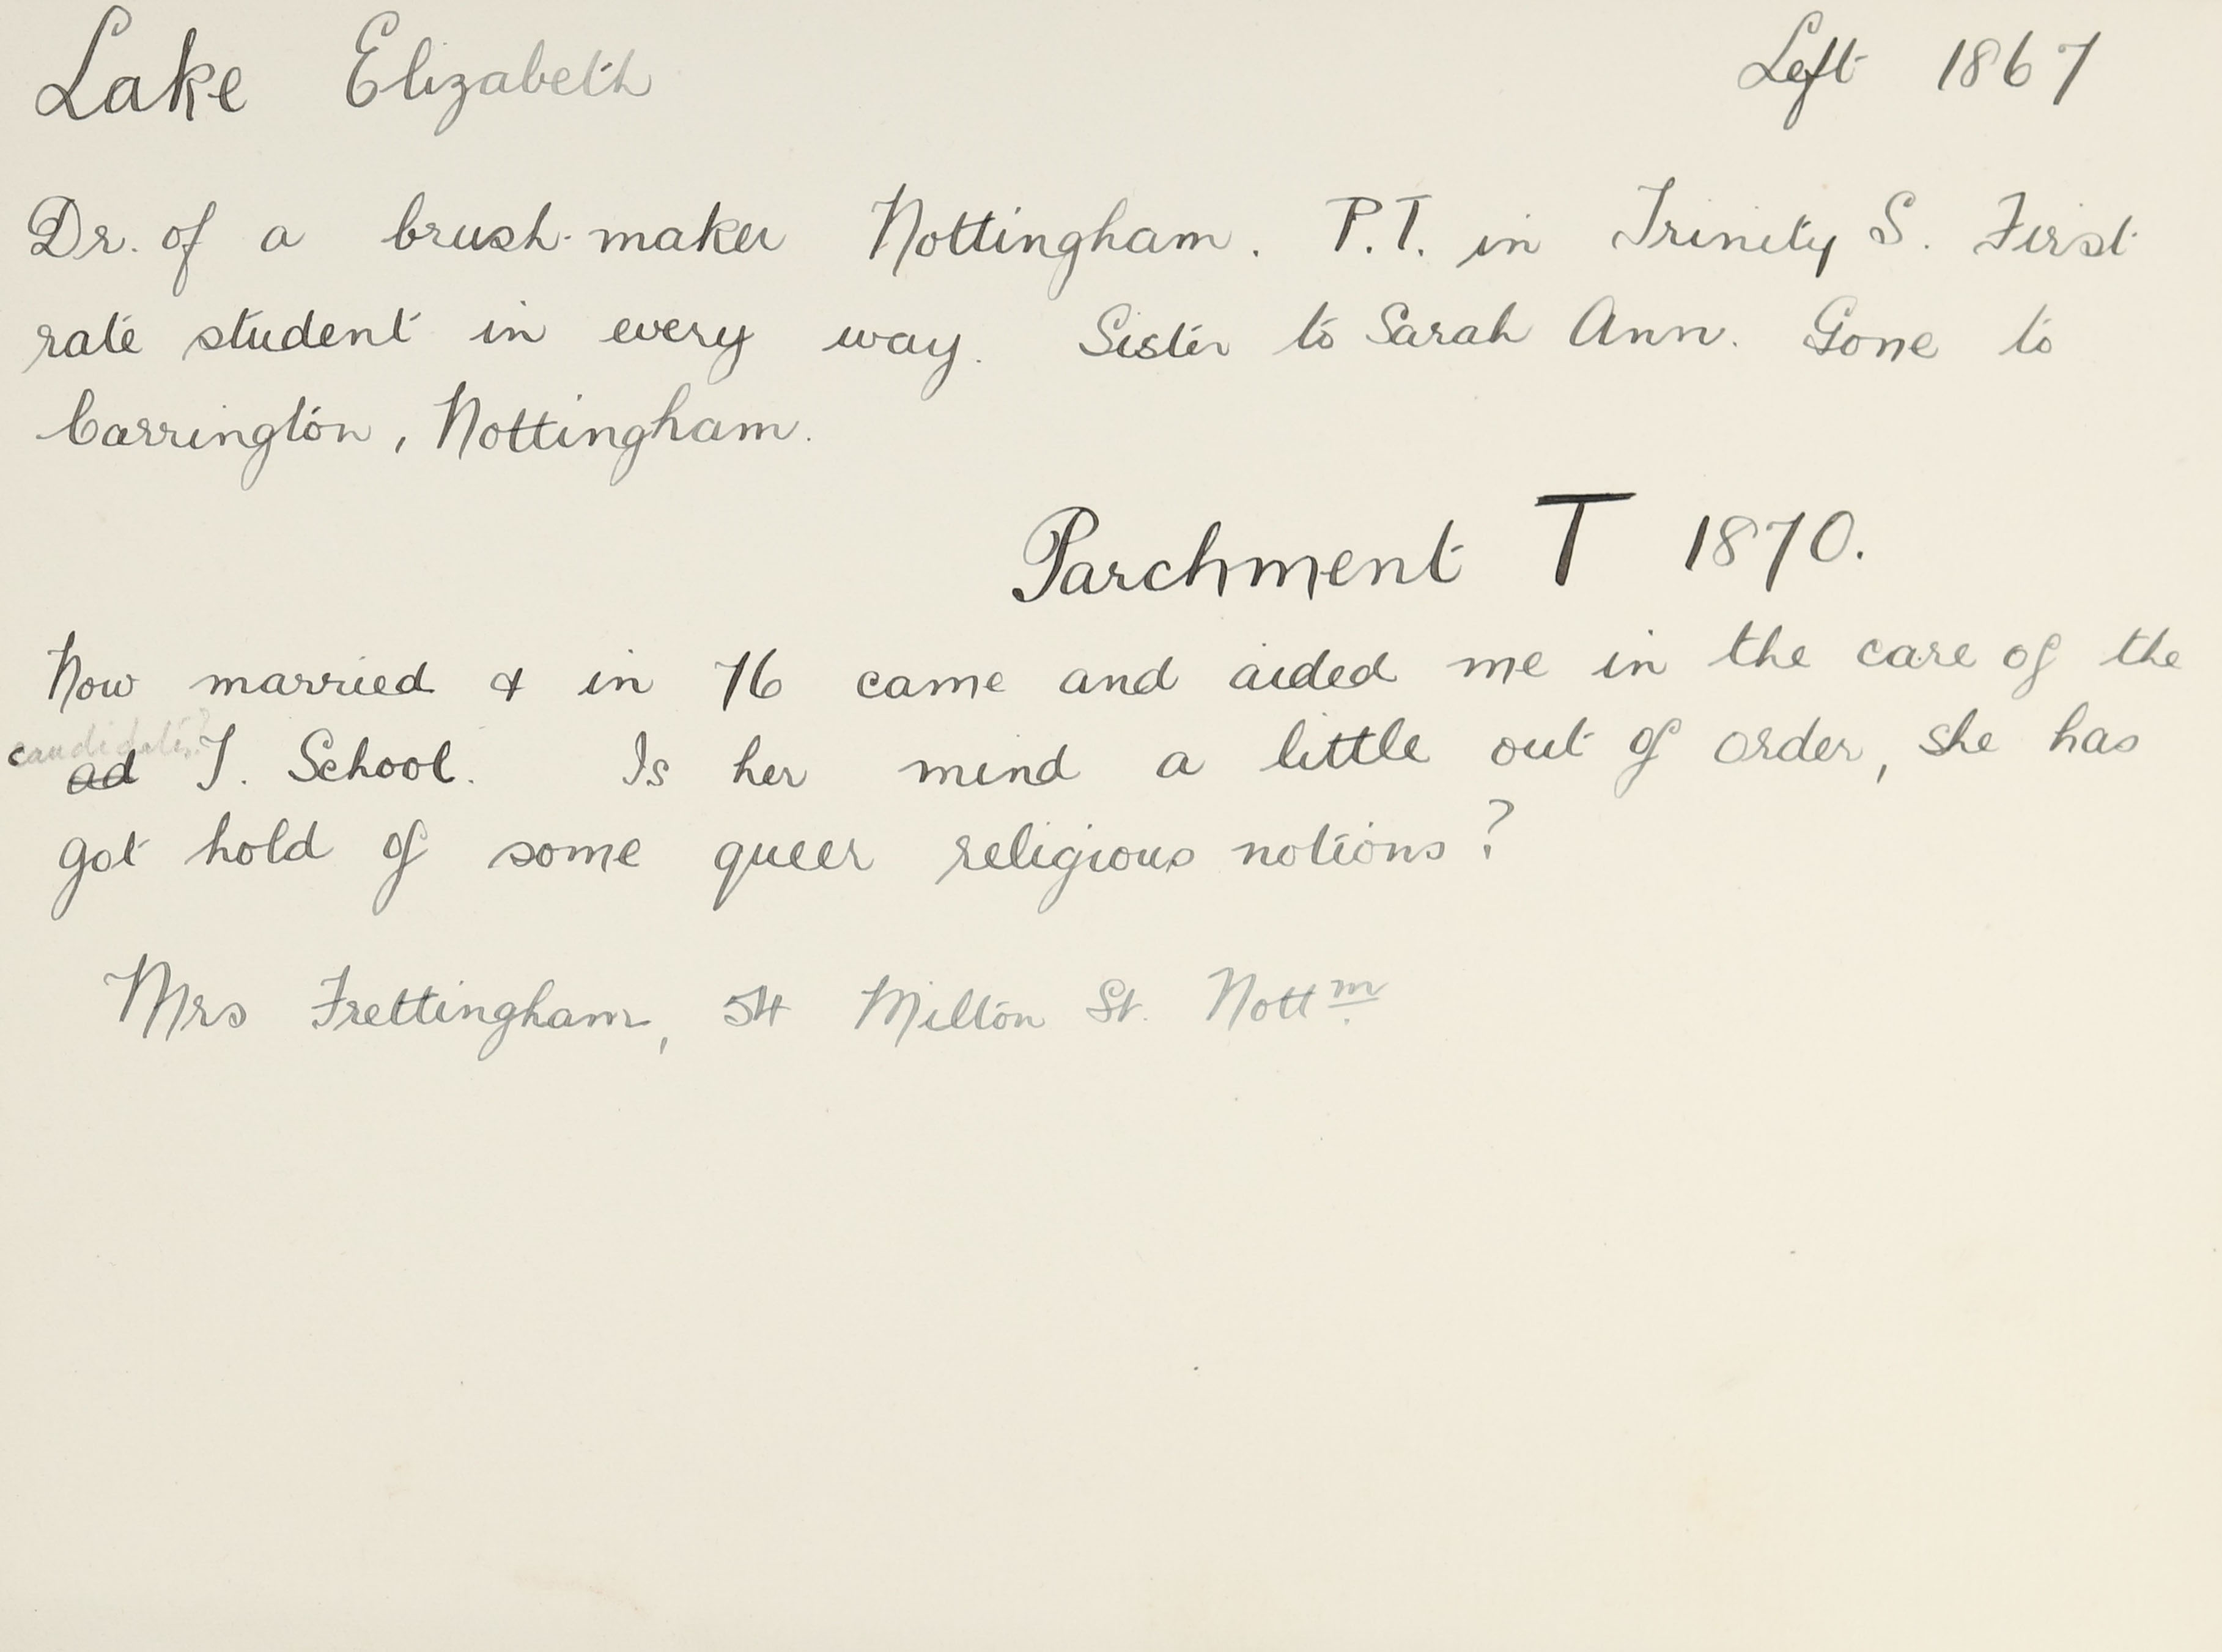 Lake Elizabeth Left 1867
Dr. of a brush-maker Nottingham. P.T. in Trinity S. First
rate student in every way. Sister to Sarah Ann. Gone to
Carrington, Nottingham.
Parchment T 1870.
Now married & in 76 came and aided me in the care of the
candidates?
ad T. School. Is her mind a little out of order, she has
got hold of some queer religious notions?
Mrs Frettingham, 54 Milton St. Nottm